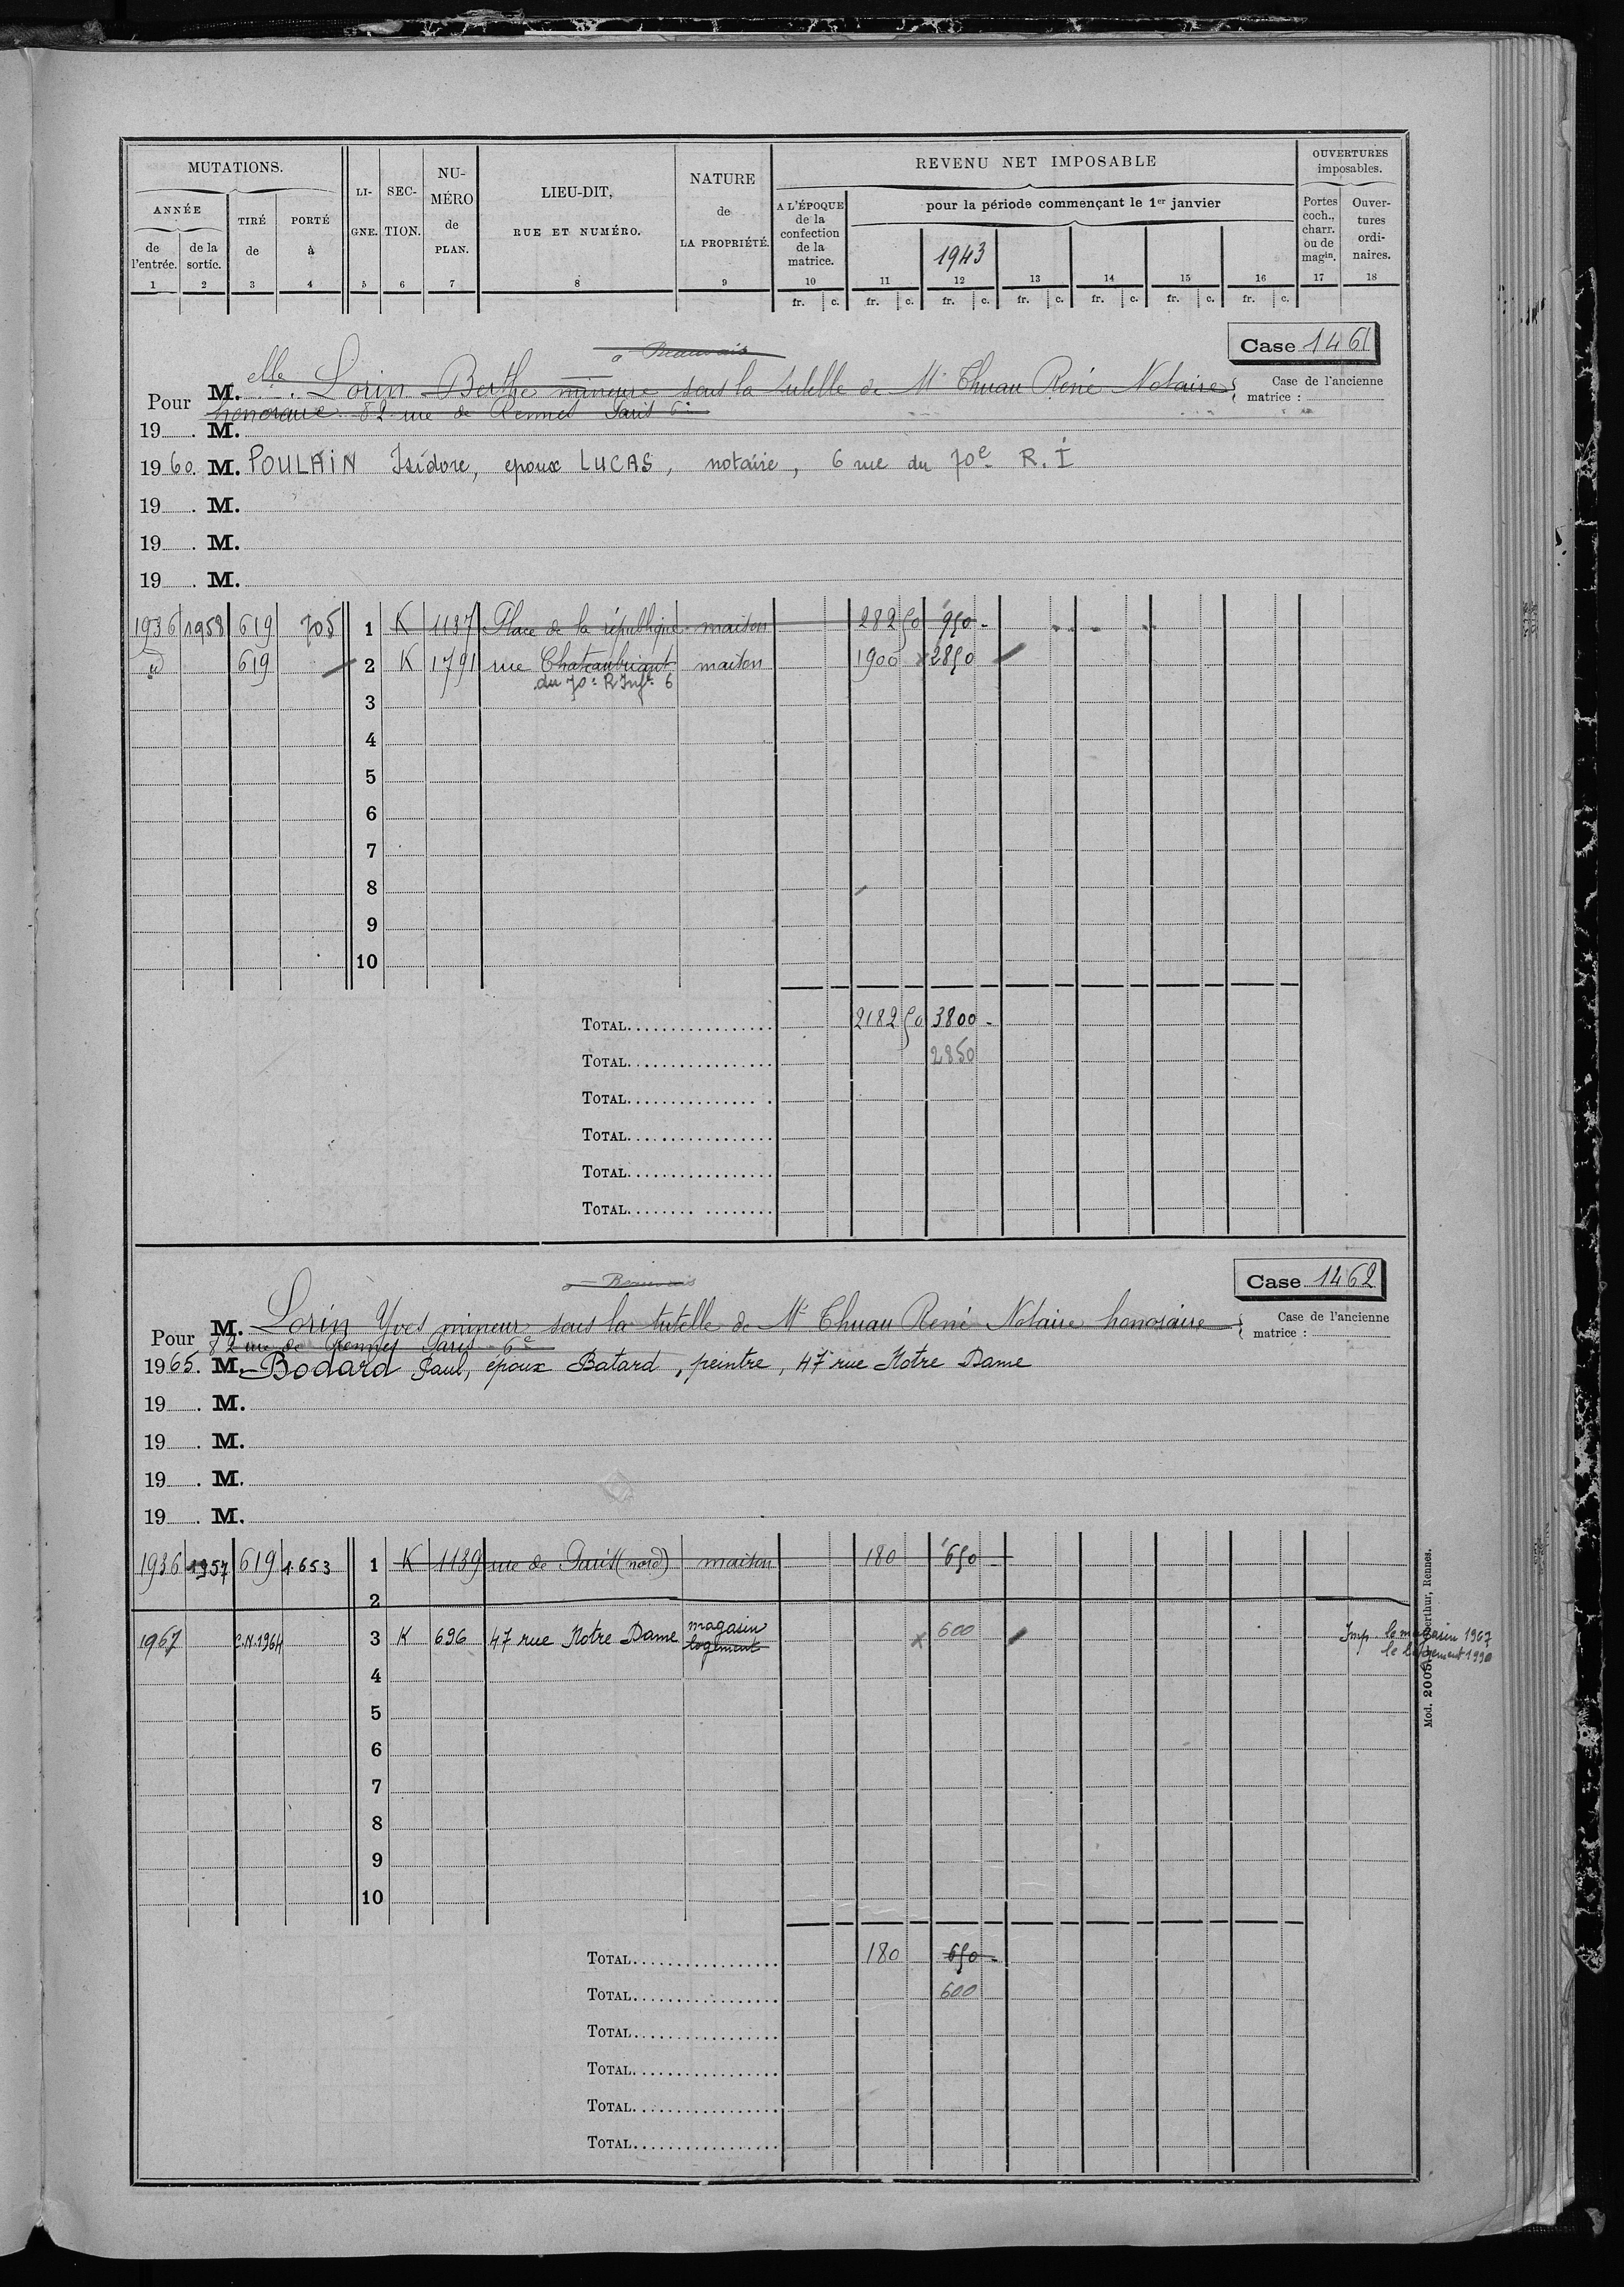 MUTATIONS.
ANNÉE
de l'entrée.
de la sortie.
TIRÉ de
PORTÉ à
LI-GNE.
SEC-TION.
NU-MÉRO de PLAN.
LIEU-DIT,
RUE ET NUMÉRO.
NATURE
de
LA PROPRIÉTÉ.
REVENU NET IMPOSABLE
A L'ÉPOQUE de la confection de la matrice.
pour la période commençant le 1er janvier
1943
OUVERTURES imposables.
Portes coch., charr. ou de magin.
Ouver-tures ordi-naires.
1 2 3 4 5 6 7 8 9 10 11 12 13 14 15 16 17 18
fr. c. fr. c. fr. c. fr. c. fr. c. fr. c. fr. c.
Case 1461
Case de l'ancienne
matrice :
à Beauvais
Pour M.elle Lorin Berthe mineure sous la tutelle de Me Thuau René Notaire
honoraire 82 rue de Rennes Paris 6e
19 . M.
1960. M. POULAIN Isidore, epoux LUCAS, notaire, 6 rue du 70e R.I
19 . M.
19 . M.
19 . M.
1936 1958 619 705 1 K 1137 Place de la république maison 282 50 950 -
d 619 2 K 1791 rue Chateaubriant maison 1900 x 2850
du 70e R Infie 6
3
4
5
6
7
8
9
10
TOTAL 2182 50 3800 -
TOTAL 2850
TOTAL
TOTAL
TOTAL
TOTAL
Case 1462
Case de l'ancienne
matrice :
à Beauvais
Pour M. Lorin Yves mineur sous la tutelle de Me Thuau René Notaire honoraire
82 rue de Rennes Paris 6e
1965. M. Bodard Paul, époux Batard, peintre, 47 rue Notre Dame
19 . M.
19 . M.
19 . M.
19 . M.
1936 1957 619 1653 1 K 1139 rue de Paris (nord) maison 180 650 -
2
1967 C.N.1964 3 K 696 47 rue Notre Dame magasin logement x 600 Imp le magasin 1967
le logement 1990
4
5
6
7
8
9
10
TOTAL 180 650 -
TOTAL 600
TOTAL
TOTAL
TOTAL
TOTAL